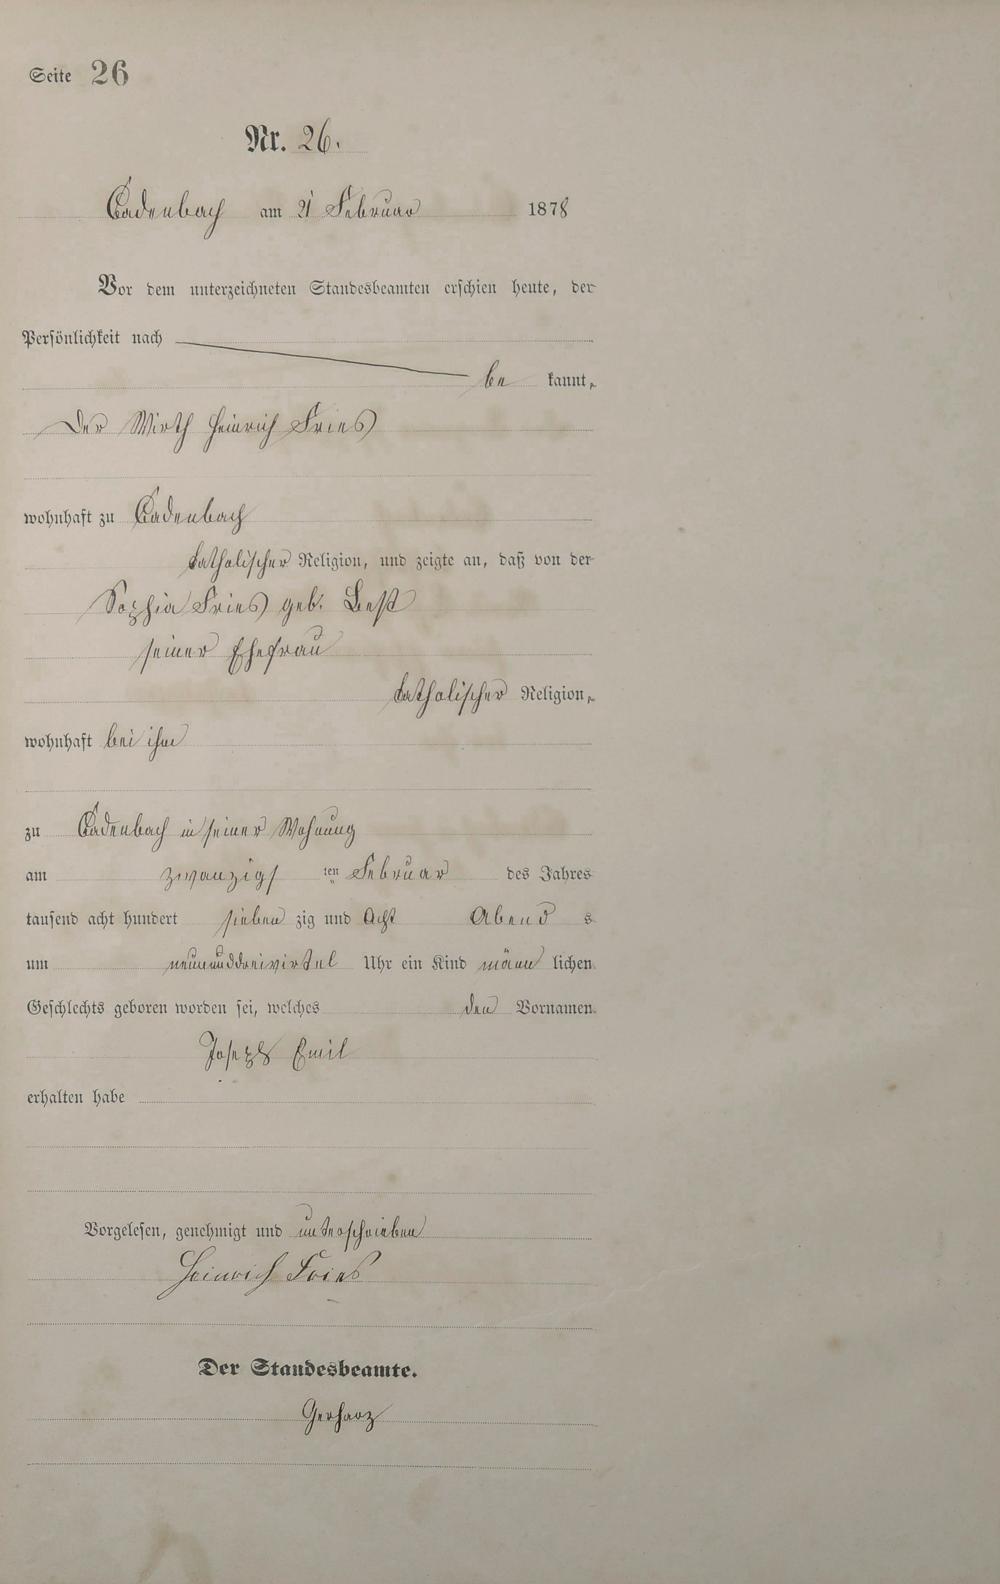 Seite 26
Nr. 26.
Cadenbach am 21 Februar 1878
Vor dem unterzeichneten Standesbeamten erschien heute, der
Persönlichkeit nach
be kannt,
Der Wirth Heinrich Fries
wohnhaft zu Cadenbach
katholischer Religion, und zeigte an, daß von der
Sophia Fries geb. Best
seiner Ehefrau
katholischer Religion,
wohnhaft bei ihm
zu Cadenbach in seiner Wohnung
am zwanzigs ten Februar des Jahres
tausend acht hundert sieben zig und Acht Abend s
um neununddreivirtel Uhr ein Kind männ lichen
Geschlechts geboren worden sei, welches den Vornamen
Joseph Emil
erhalten habe
Vorgelesen, genehmigt und unterschrieben
Heinrich Fries
Der Standesbeamte.
Gerharz